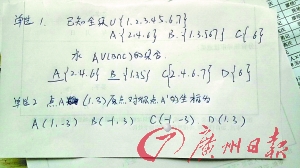 单选 1. 已知全级U{1.2.3.45.6.7}
A{2.4.6} B.{1.3.567} C{6}
求 AU(BnC)的复合.
A{2.4.6} B{1.35} C{2.4.6.7} D{6}
单选2 点A (1.3)原点对称点A'的坐标为
A(1.-3) B(-1.3) C(-1.-3) D(1.3)
广州日报